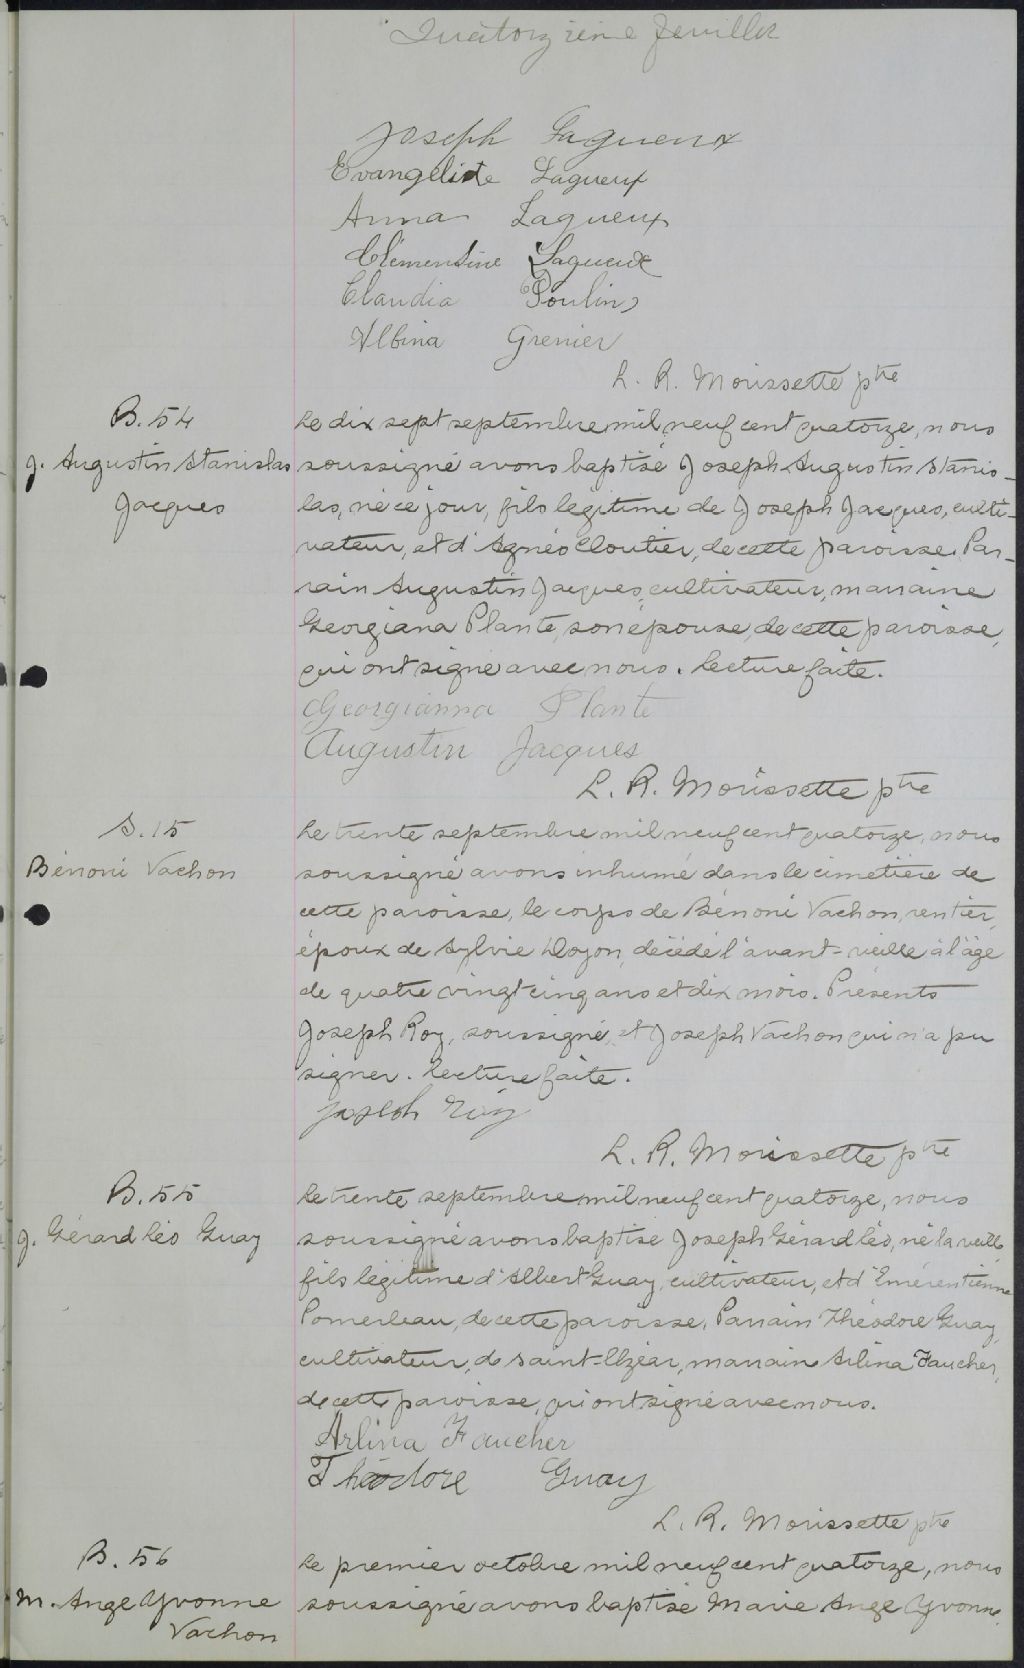 Quatorzième feuillet
Joseph Lagueux
Evangeliste Lagueux
Anna Lagueux
Clémentine Lagueux
Claudia Poulin
Albina Grenier
L. R. Morissette ptre
B. 54
J. Augustin Stanislas
Jacques
Le dix sept septembre mil neuf cent quatorze, nous
soussigné avons baptisé Joseph Augustin Stanis-
las, né ce jour, fils légitime de Joseph Jacques, culti-
vateur, et d'Agnès Cloutier, de cette paroisse. Par-
rain Augustin Jacques, cultivateur, marraine
Georgiana Plante, son épouse, de cette paroisse,
qui ont signé avec nous. Lecture faite.
Georgianna Plante
Augustin Jacques
L. R. Morissette ptre
S. 15
Bénoni Vachon
Le trente septembre mil neuf cent quatorze, nous
soussigné avons inhumé dans le cimetière de
cette paroisse, le corps de Bénoni Vachon, rentier,
époux de Sylvie Doyon, décédé l'avant-veille à l'âge
de quatre vingt cinq ans et dix mois. Présents
Joseph Roy, soussigné, et Joseph Vachon qui n'a pu
signer. Lecture faite.
Joseph Roy
L. R. Morissette ptre
B. 55
J. Gérard Léo Guay
Le trente septembre mil neuf cent quatorze, nous
soussigné avons baptisé Joseph Gérard Léo, né la veille
fils légitime d'Albert Guay, cultivateur, et d'Emérentienne
Pomerleau, de cette paroisse. Parrain Théodore Guay,
cultivateur, de Saint-Elzéar, marraine Arlina Faucher,
de cette paroisse, qui ont signé avec nous.
Arlina Faucher
Théodore Guay
L. R. Morissette ptre
B. 56
M. Ange Yvonne
Vachon
Le premier octobre mil neuf cent quatorze, nous
soussigné avons baptisé Marie Ange Yvonne,